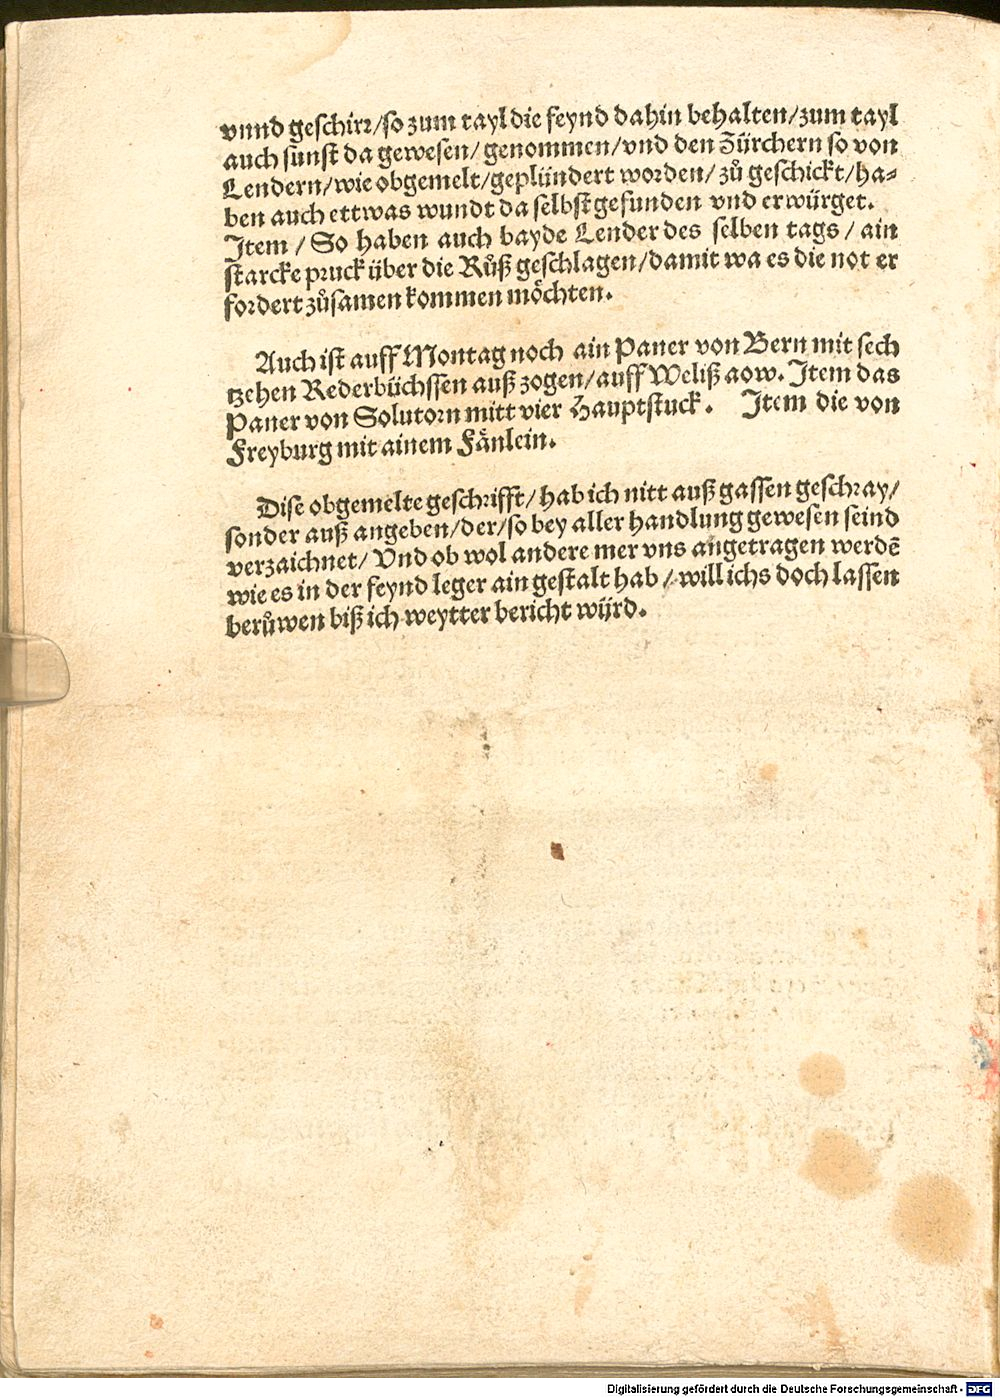 vnnd geschirr/so zum tayl die feynd dahin behalten/zum tayl
auch sunst da gewesen/genommen/vnd den Zürchern so von
Lendern/wie obgemelt/geplündert worden/zů geschickt/ha-
ben auch ettwas wundt da selbst gefunden vnd erwürget.
Item / So haben auch bayde Lender des selben tags / ain
starcke pruck über die Růß geschlagen/damit wa es die not er
fordert zůsamen kommen möchten.
Auch ist auff Montag noch ain Paner von Bern mit sech
tzehen Rederbüchssen auß zogen/auff Weliß aow. Item das
Paner von Solutorn mitt vier Hauptstuck. Item die von
Freyburg mit ainem Fänlein.
Dise obgemelte geschrifft/hab ich nitt auß gassen geschray/
sonder auß angeben/der/so bey aller handlung gewesen seind
verzaichnet/Vnd ob wol andere mer vns angetragen werdē
wie es in der feynd leger ain gestalt hab/will ichs doch lassen
berůwen biß ich weytter bericht würd.
Digitalisierung gefördert durch die Deutsche Forschungsgemeinschaft - DFG